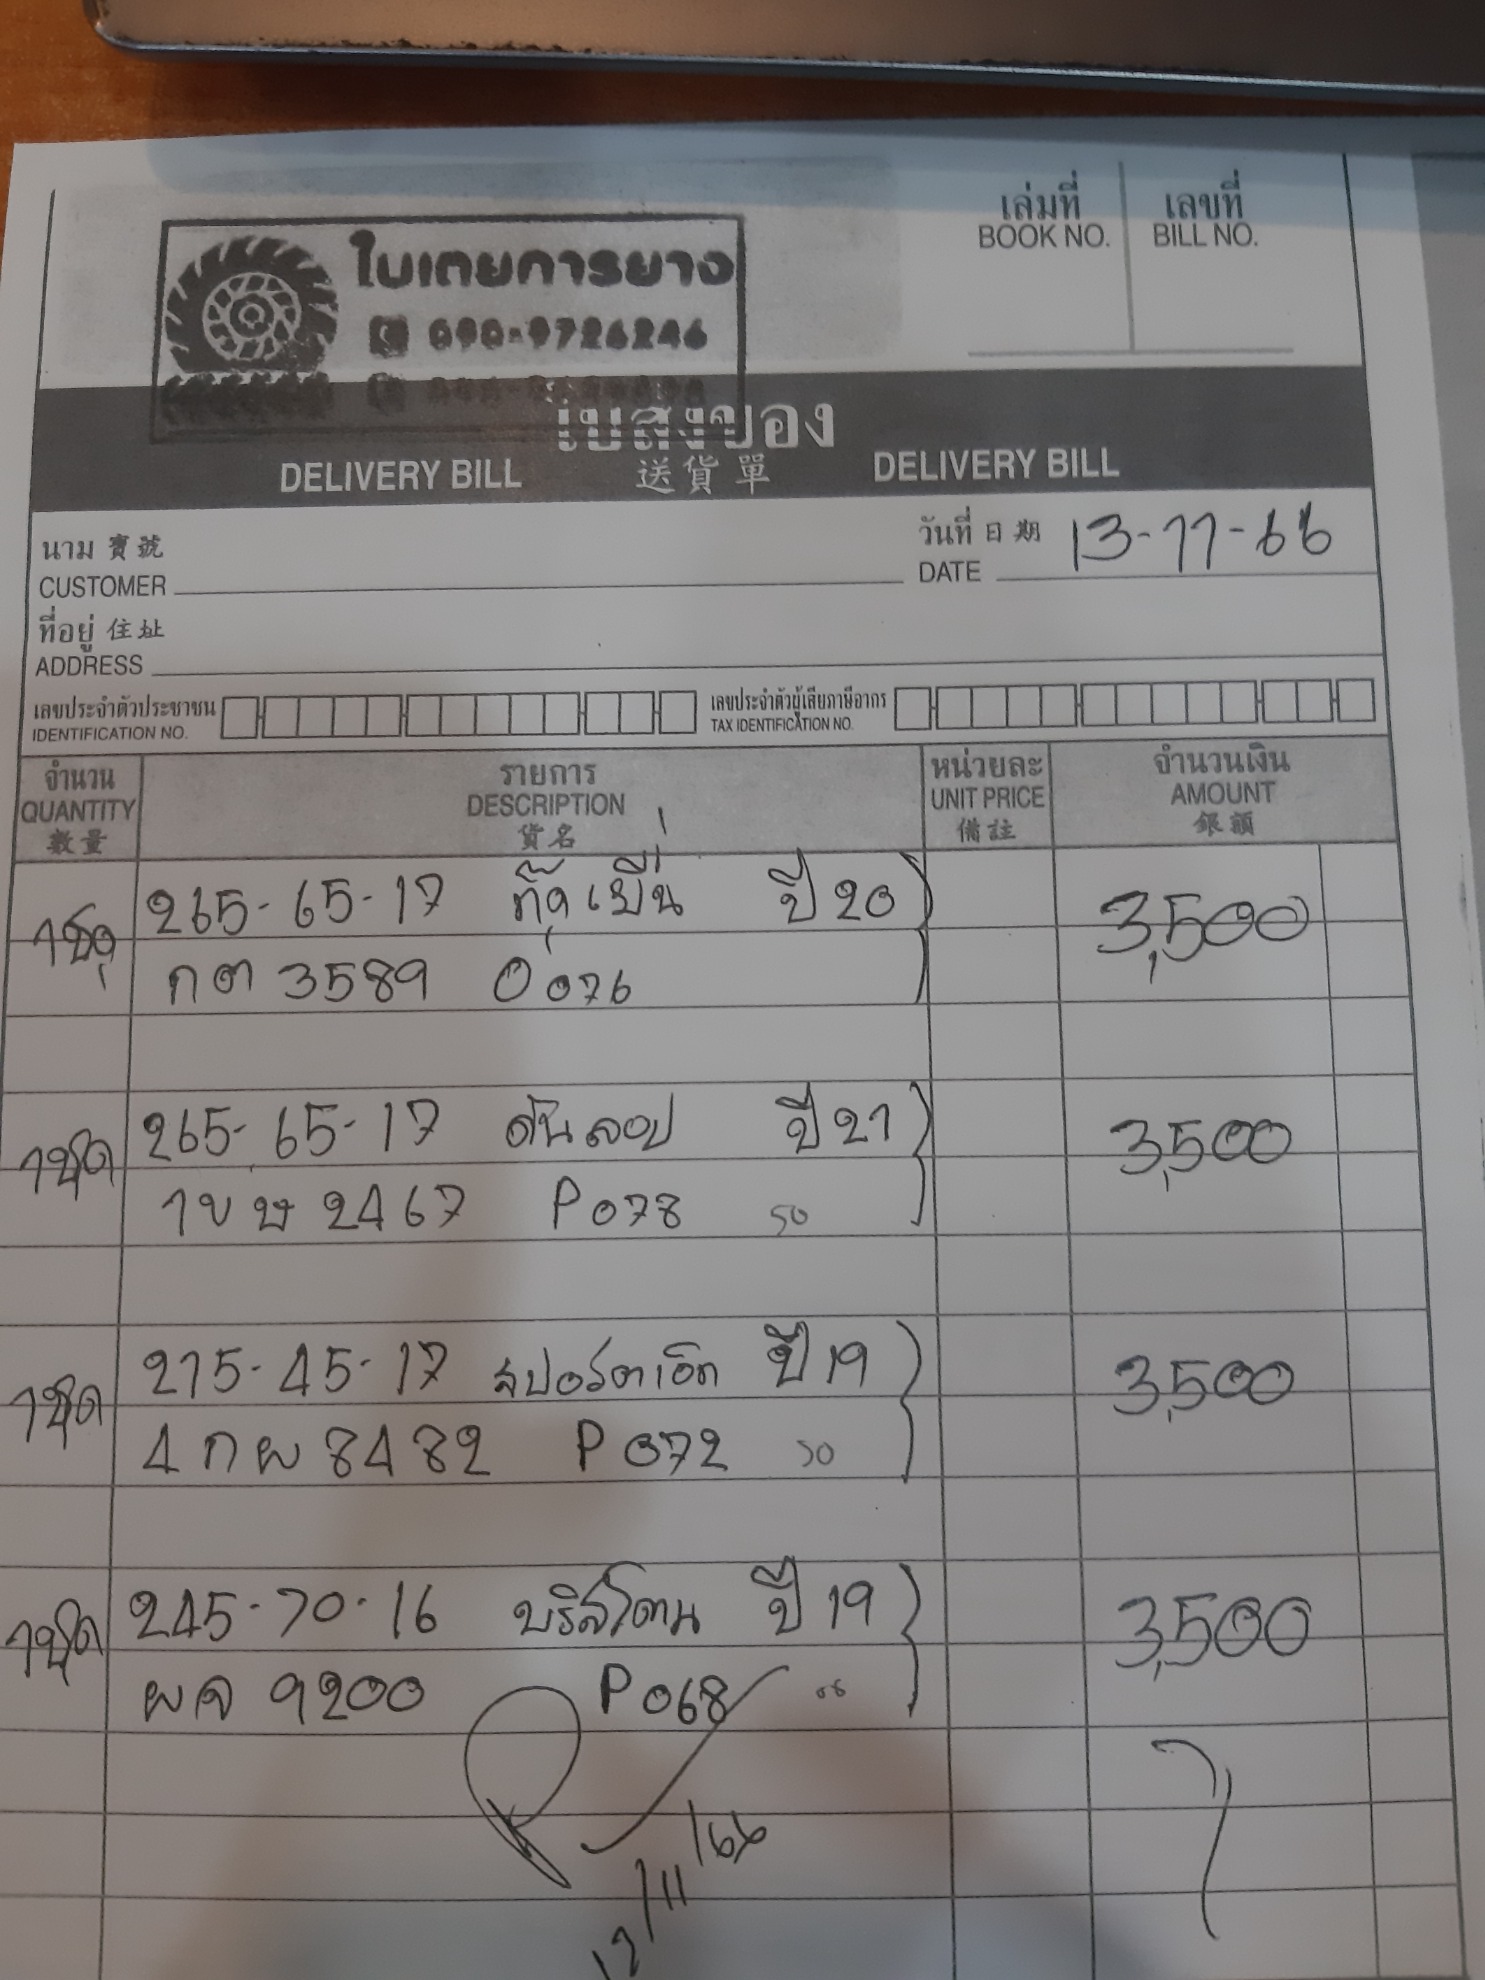 ใบเตยการยาง
090-9726246
เล่มที่ เลขที่
BOOK NO. BILL NO.
ใบส่งของ
DELIVERY BILL 送貨單 DELIVERY BILL
นาม 寶號 วันที่ 日期 13-11-66
CUSTOMER DATE
ที่อยู่ 住址
ADDRESS
เลขประจำตัวประชาชน เลขประจำตัวผู้เสียภาษีอากร
IDENTIFICATION NO. TAX IDENTIFICATION NO.
จำนวน รายการ หน่วยละ จำนวนเงิน
QUANTITY DESCRIPTION UNIT PRICE AMOUNT
數量 貨名 備註 銀額
1ชุด 265-65-17 ปี 20 3,500
กต 3589 O076
1ชุด 265-65-17 ดันลอป ปี 21 3,500
1ขษ 2467 P078 50
1ชุด 215-45-17 สปอร์ตเอ็ก ปี 19 3,500
4กผ 8482 P072 50
1ชุด 245-70-16 บริสโตน ปี 19 3,500
ผจ 9200 P068
/11/66